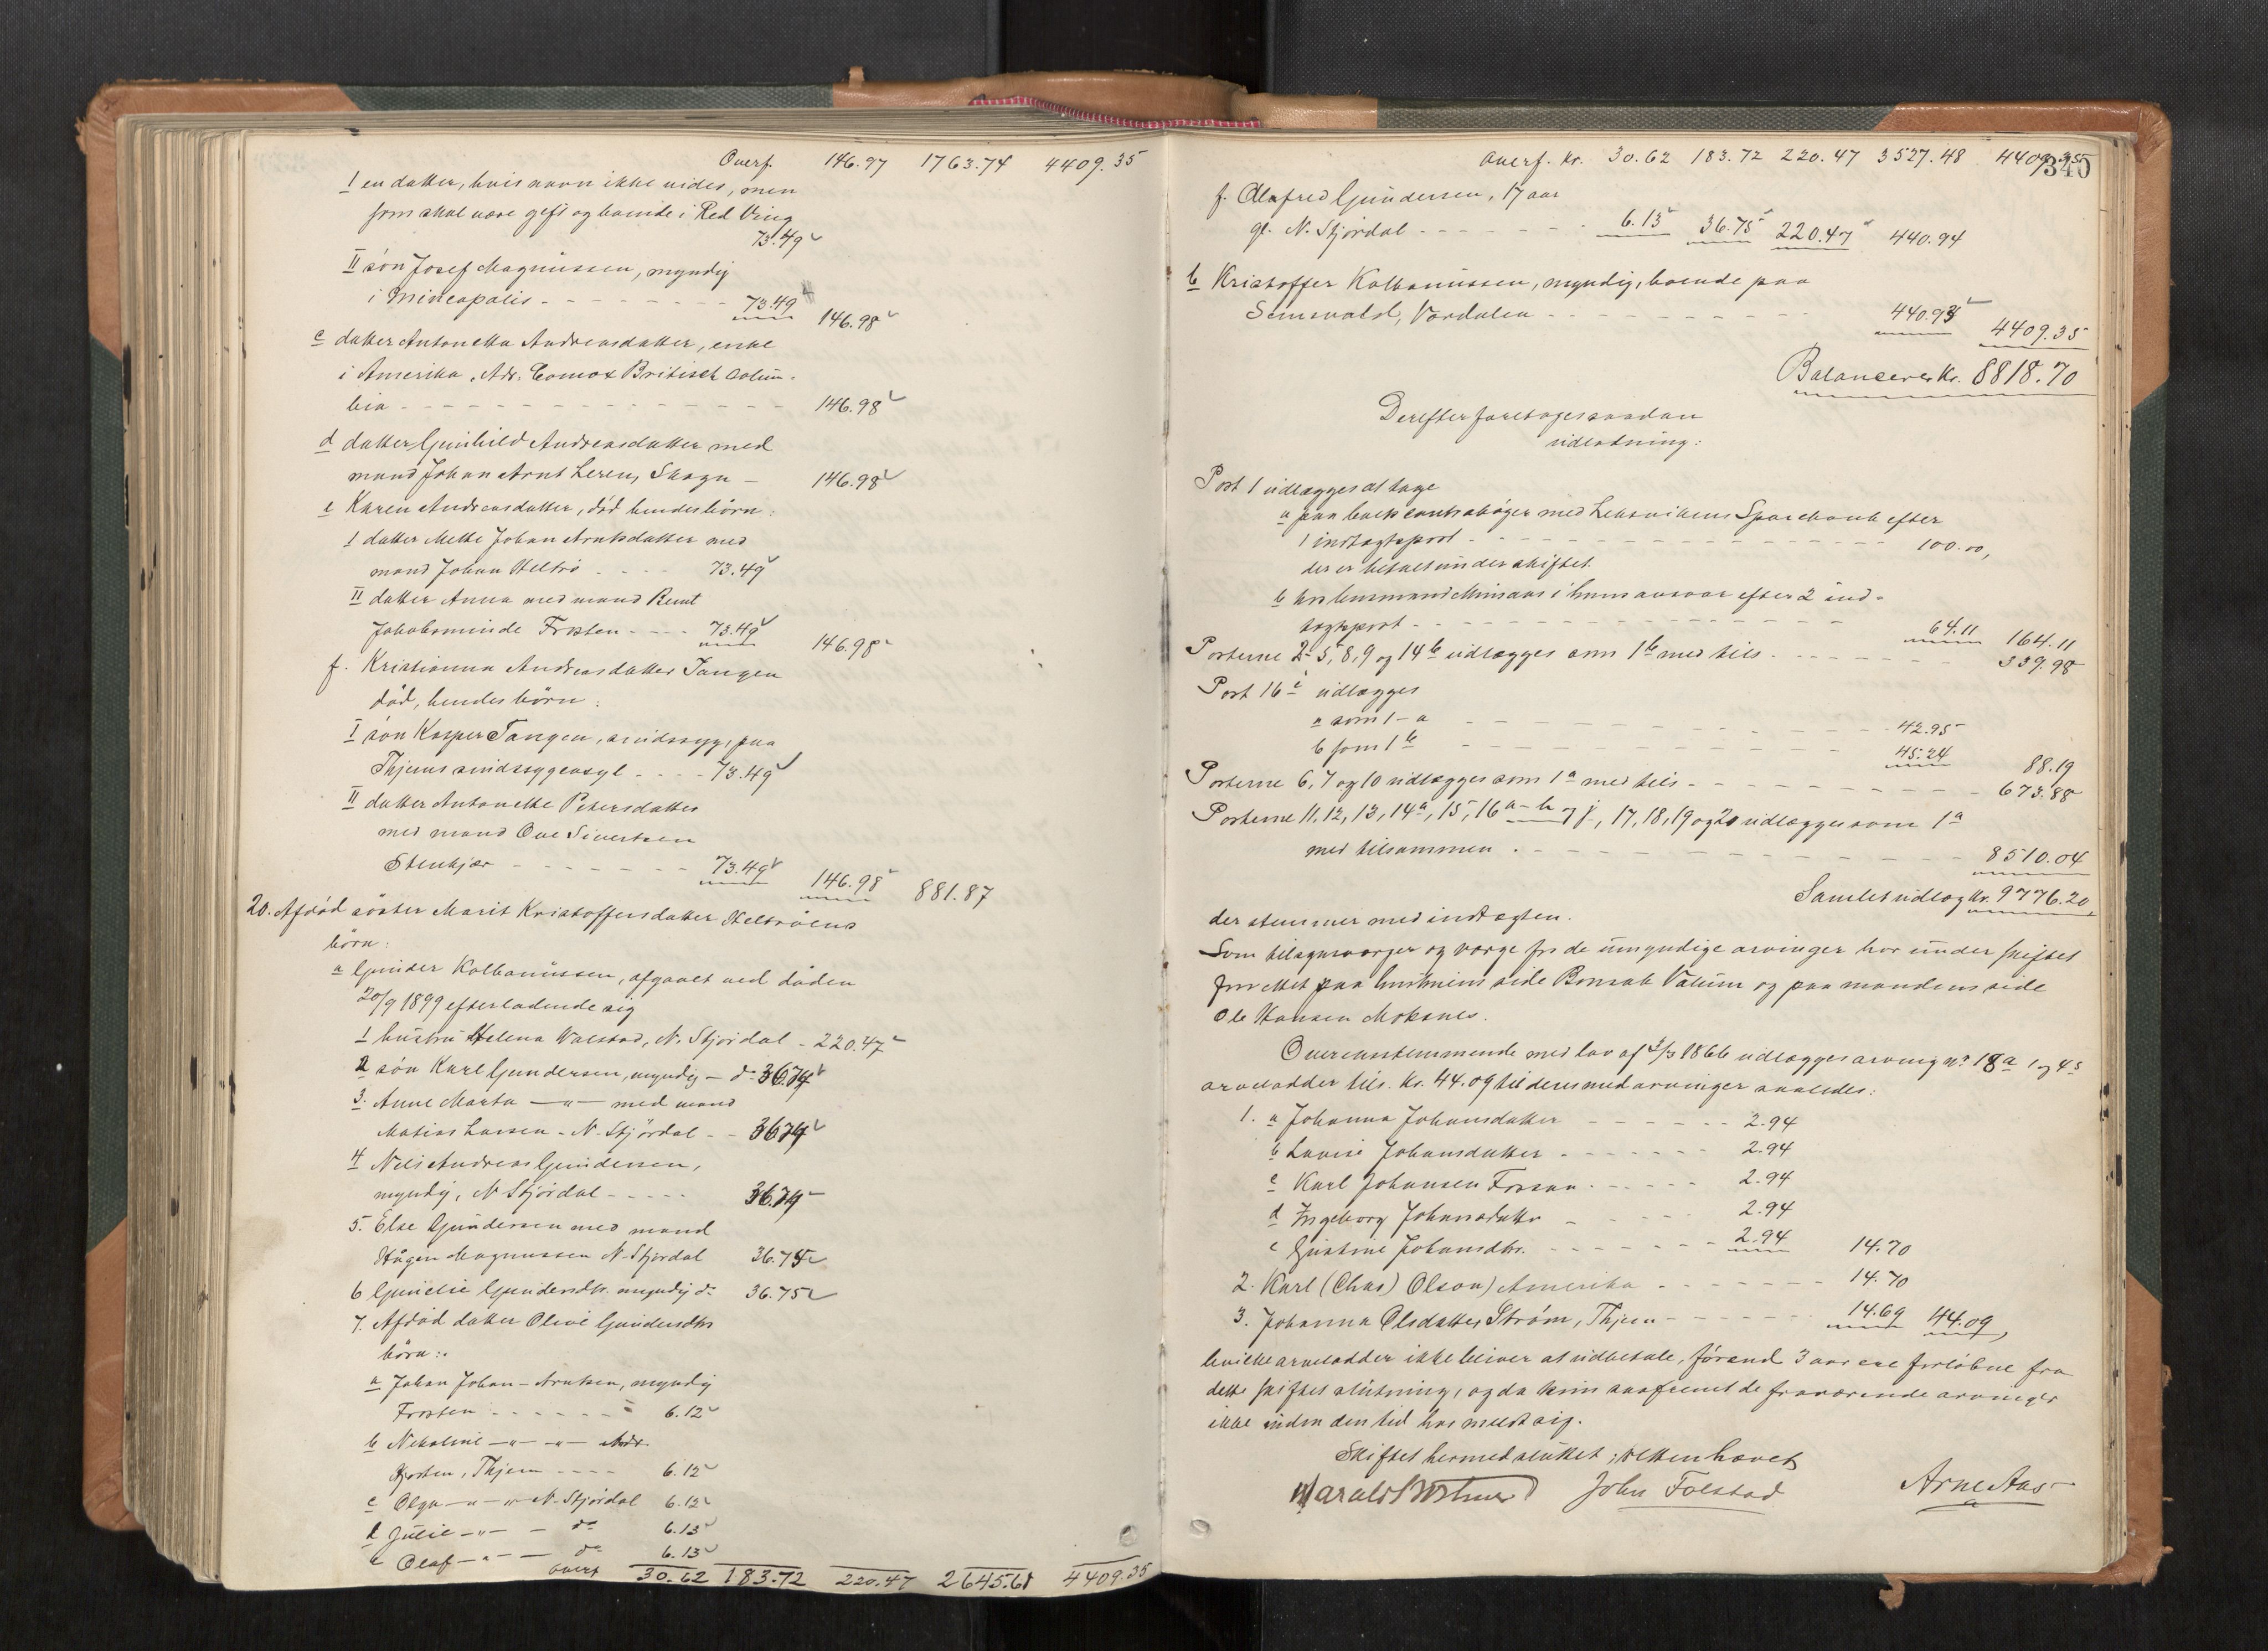 Overf. 146.97 1763.74 4409.35
I en datter, hvis navn ikke vides, men
som skal være gift og boende i Red Wing
73.49
II søn Josef Magnussen, myndig
i Mineapolis - - - 73.49 146.98
c datter Antonetta Andreasdatter, enke
i Amerika, Adr. Comox Britisch Colum-
bia - - - 146.98
d datter Gunhild Andreasdatter med
mand Johan Arnt Leren, Skogn - 146.98
e Karen Andreasdatter, død hendes börn:
I datter Mette Johan Arntsdatter med
mand Johan Heltrö - - - 73.49
II datter Anna med mand Bernt
Jakobsminde Frosten - - - 73.49 146.98
f. Kristianna Andreasdatter Tangen
död, hendes börn:
I sön Kasper Tangen, sindssyg, paa
Thjems sindssygeasyl - - - 73.49
II datter Antonette Petersdatter
med mand Ove Sivertsen
Stenkjær - - - 73.49 146.98 881.87
20. Afdöd söster Marit Kristoffersdatter Heltröens
börn:
a Gunder Kolbanussen, afgaaet ved döden
20/9 1899 efterladende sig
1 hustru Helena Valstad, N. Stjördal - 220.47
2 sön Karl Gundersen, myndig - do 36.74
3. Anne Marta —"— med mand
Matias Larsen - N. Stjördal - - 36.74
4 Nils Andreas Gundersen,
myndig, N Stjördal - - - 36.74
5. Else Gundersen med mand
Hågen Magnussen N. Stjördal 36.75
6 Gunelie Gundersdtr. myndig do 36.75
7. Afdöd datter Olive Gundersdtrs
börn:
a Johan Johan-Arntsen, myndig
Frosten - - - 6.12
b Nikoline —"— —"— Andr.
Thjem - - - 6.12
c Olga —"— —"— N. Stjördal 6.12
d Julie —"— — do 6.13
e Olaf —"— — do 6.13
overf 30.62 183.72 220.47 2645.61 4409.35
Overf. Kr. 30.62 183.72 220.47 3527.48 4409.35
340
f. Olafred Gundersen, 17 aar
gl. N. Stjördal - - - 6.13 36.75 220.47 440.94
b Kristoffer Kolbanussen, myndig, boende paa
Værdalen - - - 440.93 4409.35
Balancerer Kr. 8818.70
Derefter foretoges saadan
udlodning:
Post 1 udlægges at tage
a paa bankcontrabøger med Leksvikens Sparebank efter
1 indtægtspost - - - 100.00,
der er betalt under skiftet
b hos lensmand Minsaas i hans ansvar efter 2 ind-
tægtspost - - - 64.11 164.11
Posterne 2-5, 8, 9 og 14b udlægges som 1b med tils. - - - 339.98
Post 16i udlægges
a som 1-a - - - 42.95
b som 1b - - - 45.24 88.19
Posterne 6, 7 og 10 udlægges som 1a med tils - - - 673.88
Posterne 11, 12, 13, 14a, 15, 16 a-h og j, 17, 18, 19 og 20 udlægges som 1a
med tilsammen - - - 8510.04
Samlet udlæg Kr. 9776.20,
der stemmer med indtægten.
Som tilsynsværger og værge for de umyndige arvinger har under skiftet
forrettet paa hustruens side Bonsak Vatum og paa mandens side
Ole Hansen Moksnes.
Overensstemmende med lov af 3/3 1866 udlægges arving no 18a 1 og 4s
arvelodder tils. Kr. 44.09 til deres medarvinger saaledes:
1. a Johanna Johansdatter - - - 2.94
b Lovise Johansdatter - - - 2.94
c Karl Johansen Fossan - - - 2.94
d Ingeborg Johansdatter - - - 2.94
e Gustine Johansdtr. - - - 2.94 14.70
2. Karl (Chas) Olson) Amerika - - - 14.70
3. Johanna Olsdatter Strøm, Thjem - - - 14.69 44.09,
hvilke arvelodder ikke bliver at udbetale, förend 3 aar ere forlöbne fra
dette skiftes slutning, og da kun saafremt de fraværende arvinger
ikke inden den tid har meldt sig.
Skiftet hermed sluttet; retten hævet
Harald Bothner John Folstad Arne Aas